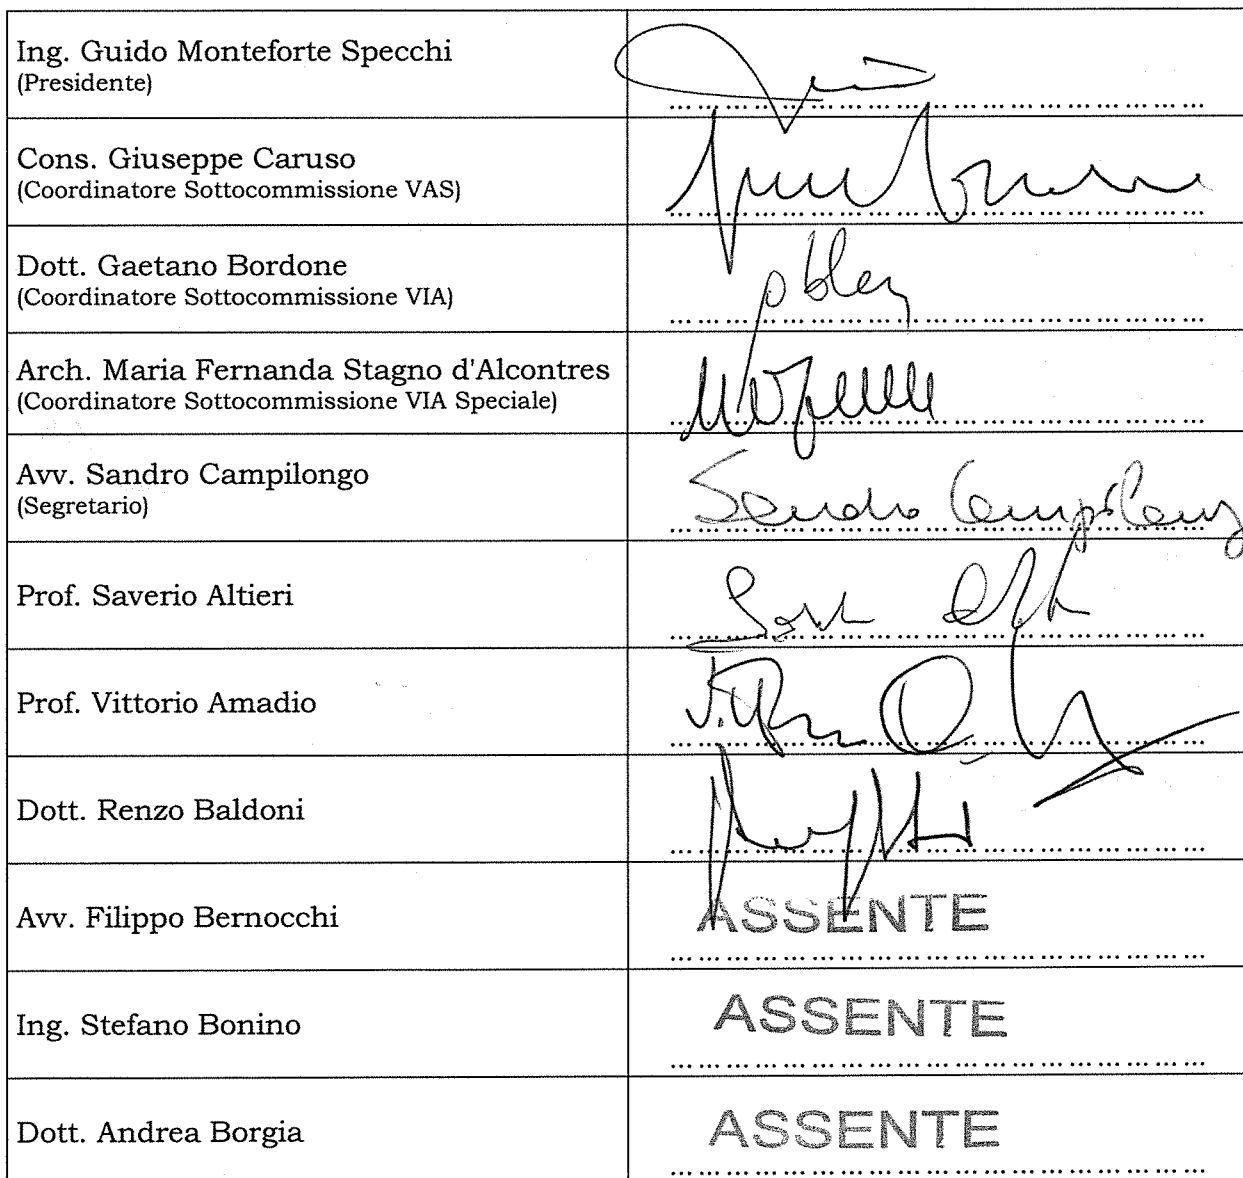 Ing. Guido Monteforte Specchi
(Presidente)
Cons. Giuseppe Caruso
(Coordinatore Sottocommissione VAS)
Dott. Gaetano Bordone
(Coordinatore Sottocommissione VIA)
Arch. Maria Fernanda Stagno d'Alcontres
(Coordinatore Sottocommissione VIA Speciale)
Avv. Sandro Campilongo
(Segretario)
Sandro Campilongo
Prof. Saverio Altieri
Prof. Vittorio Amadio
Dott. Renzo Baldoni
Avv. Filippo Bernocchi
ASSENTE
Ing. Stefano Bonino
ASSENTE
Dott. Andrea Borgia
ASSENTE